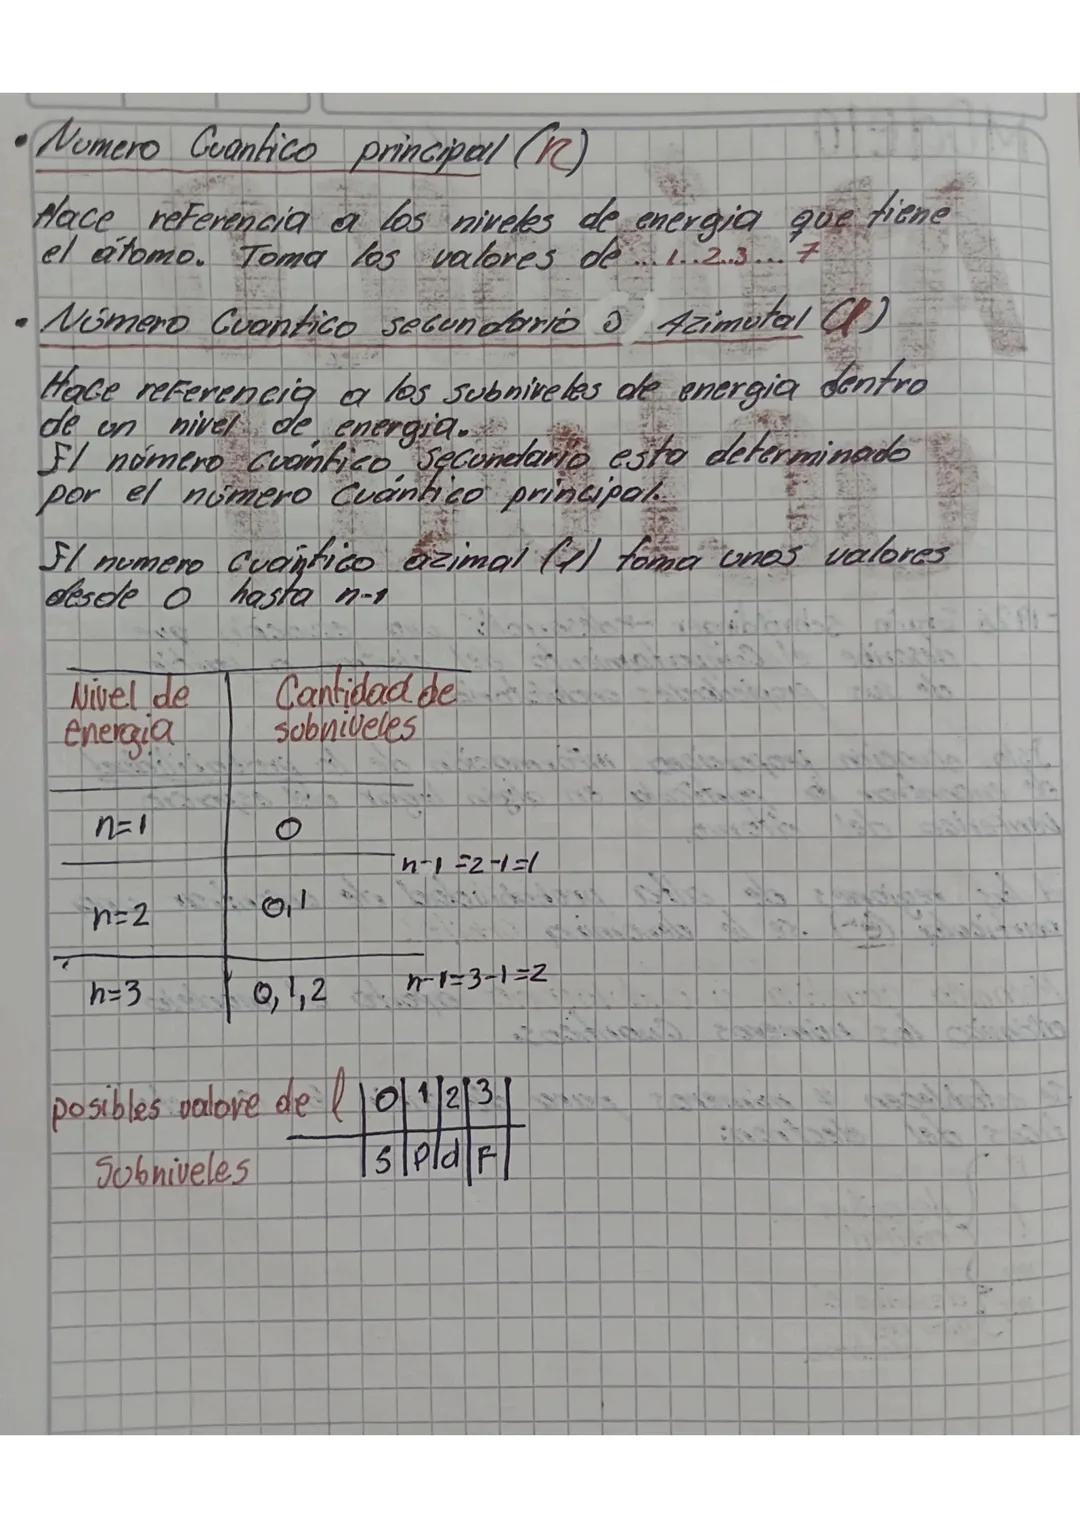 • Numero Cuantico principal (n)
Hace referencia a los niveles de energia que tiene
el átomo. Toma los valores de ... 1..2..3... 7
• Número Cuantico secundario ó Azimutal (l)
Hace referencia a los subniveles de energia dentro
de un nivel de energia.
El número cuántico secundario esta determinado
por el número Cuántico principal.
El numero cuántico azimal (l) toma unos valores
desde 0 hasta n-1
Nivel de energia | Cantidad de subniveles
n=1 | 0
n-1=2-1=1
n=2 | 0,1
n=3 | 0,1,2 n-1=3-1=2
posibles valore de l | 0 | 1 | 2 | 3 |
Subniveles | s | p | d | F |